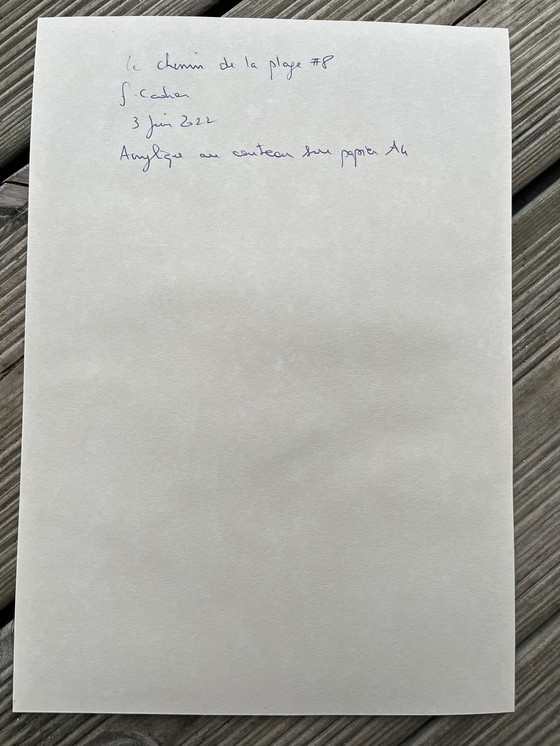 le chemin de la plage #8
3 juin 2022
Acrylique au couteau sur papier A4